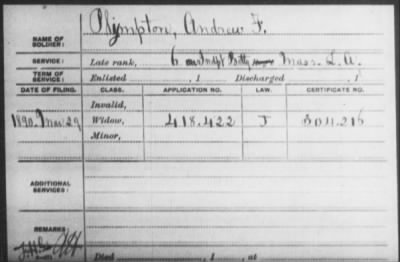 NAME OF SOLDIER: Plympton, Andrew F.
SERVICE: Late rank, 6 Batty Mass. L. A.
TERM OF SERVICE: Enlisted , 1 Discharged , 1
DATE OF FILING. CLASS. APPLICATION NO. LAW. CERTIFICATE NO.
Invalid,
1890. Mar. 29 Widow, 418.422 J 304.216
Minor,
ADDITIONAL SERVICES:
REMARKS:
Died , 1 , at